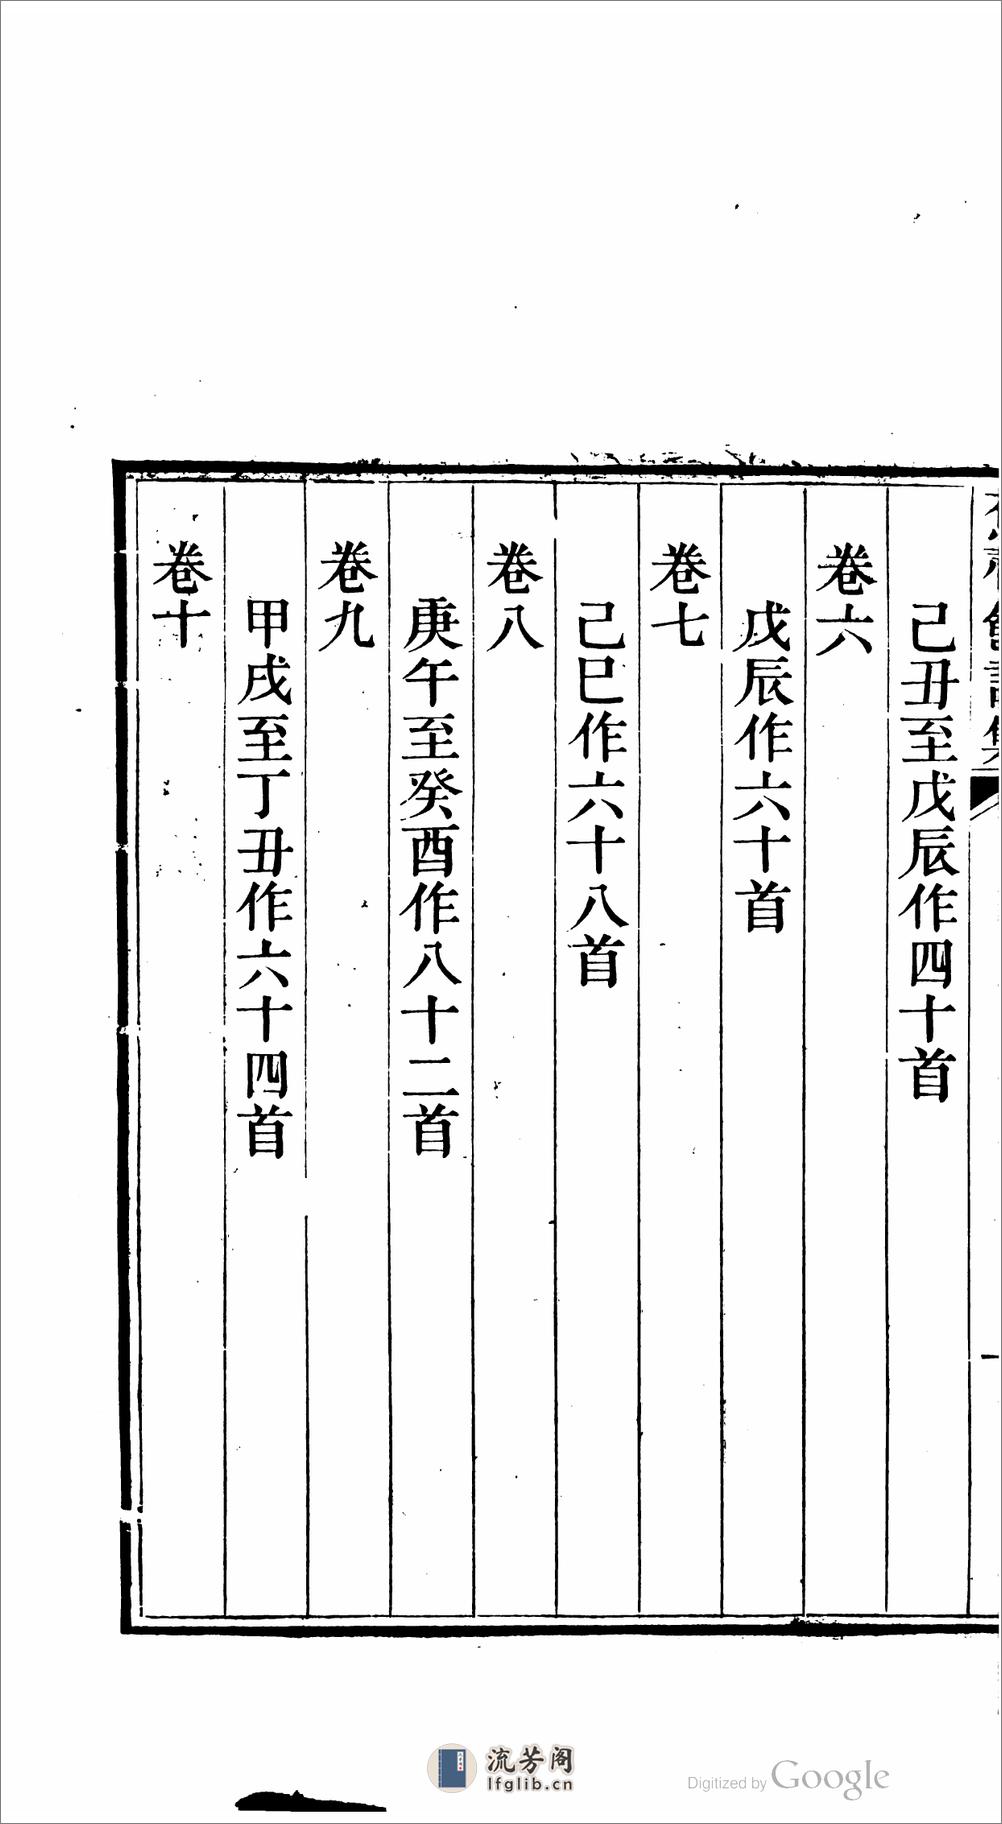 己丑至戊辰作四十首
卷六
戊辰作六十首
卷七
己巳作六十八首
卷八
庚午至癸酉作八十二首
卷九
甲戌至丁丑作六十四首
卷十
一
流芳阁
lfglib.cn
Digitized by Google